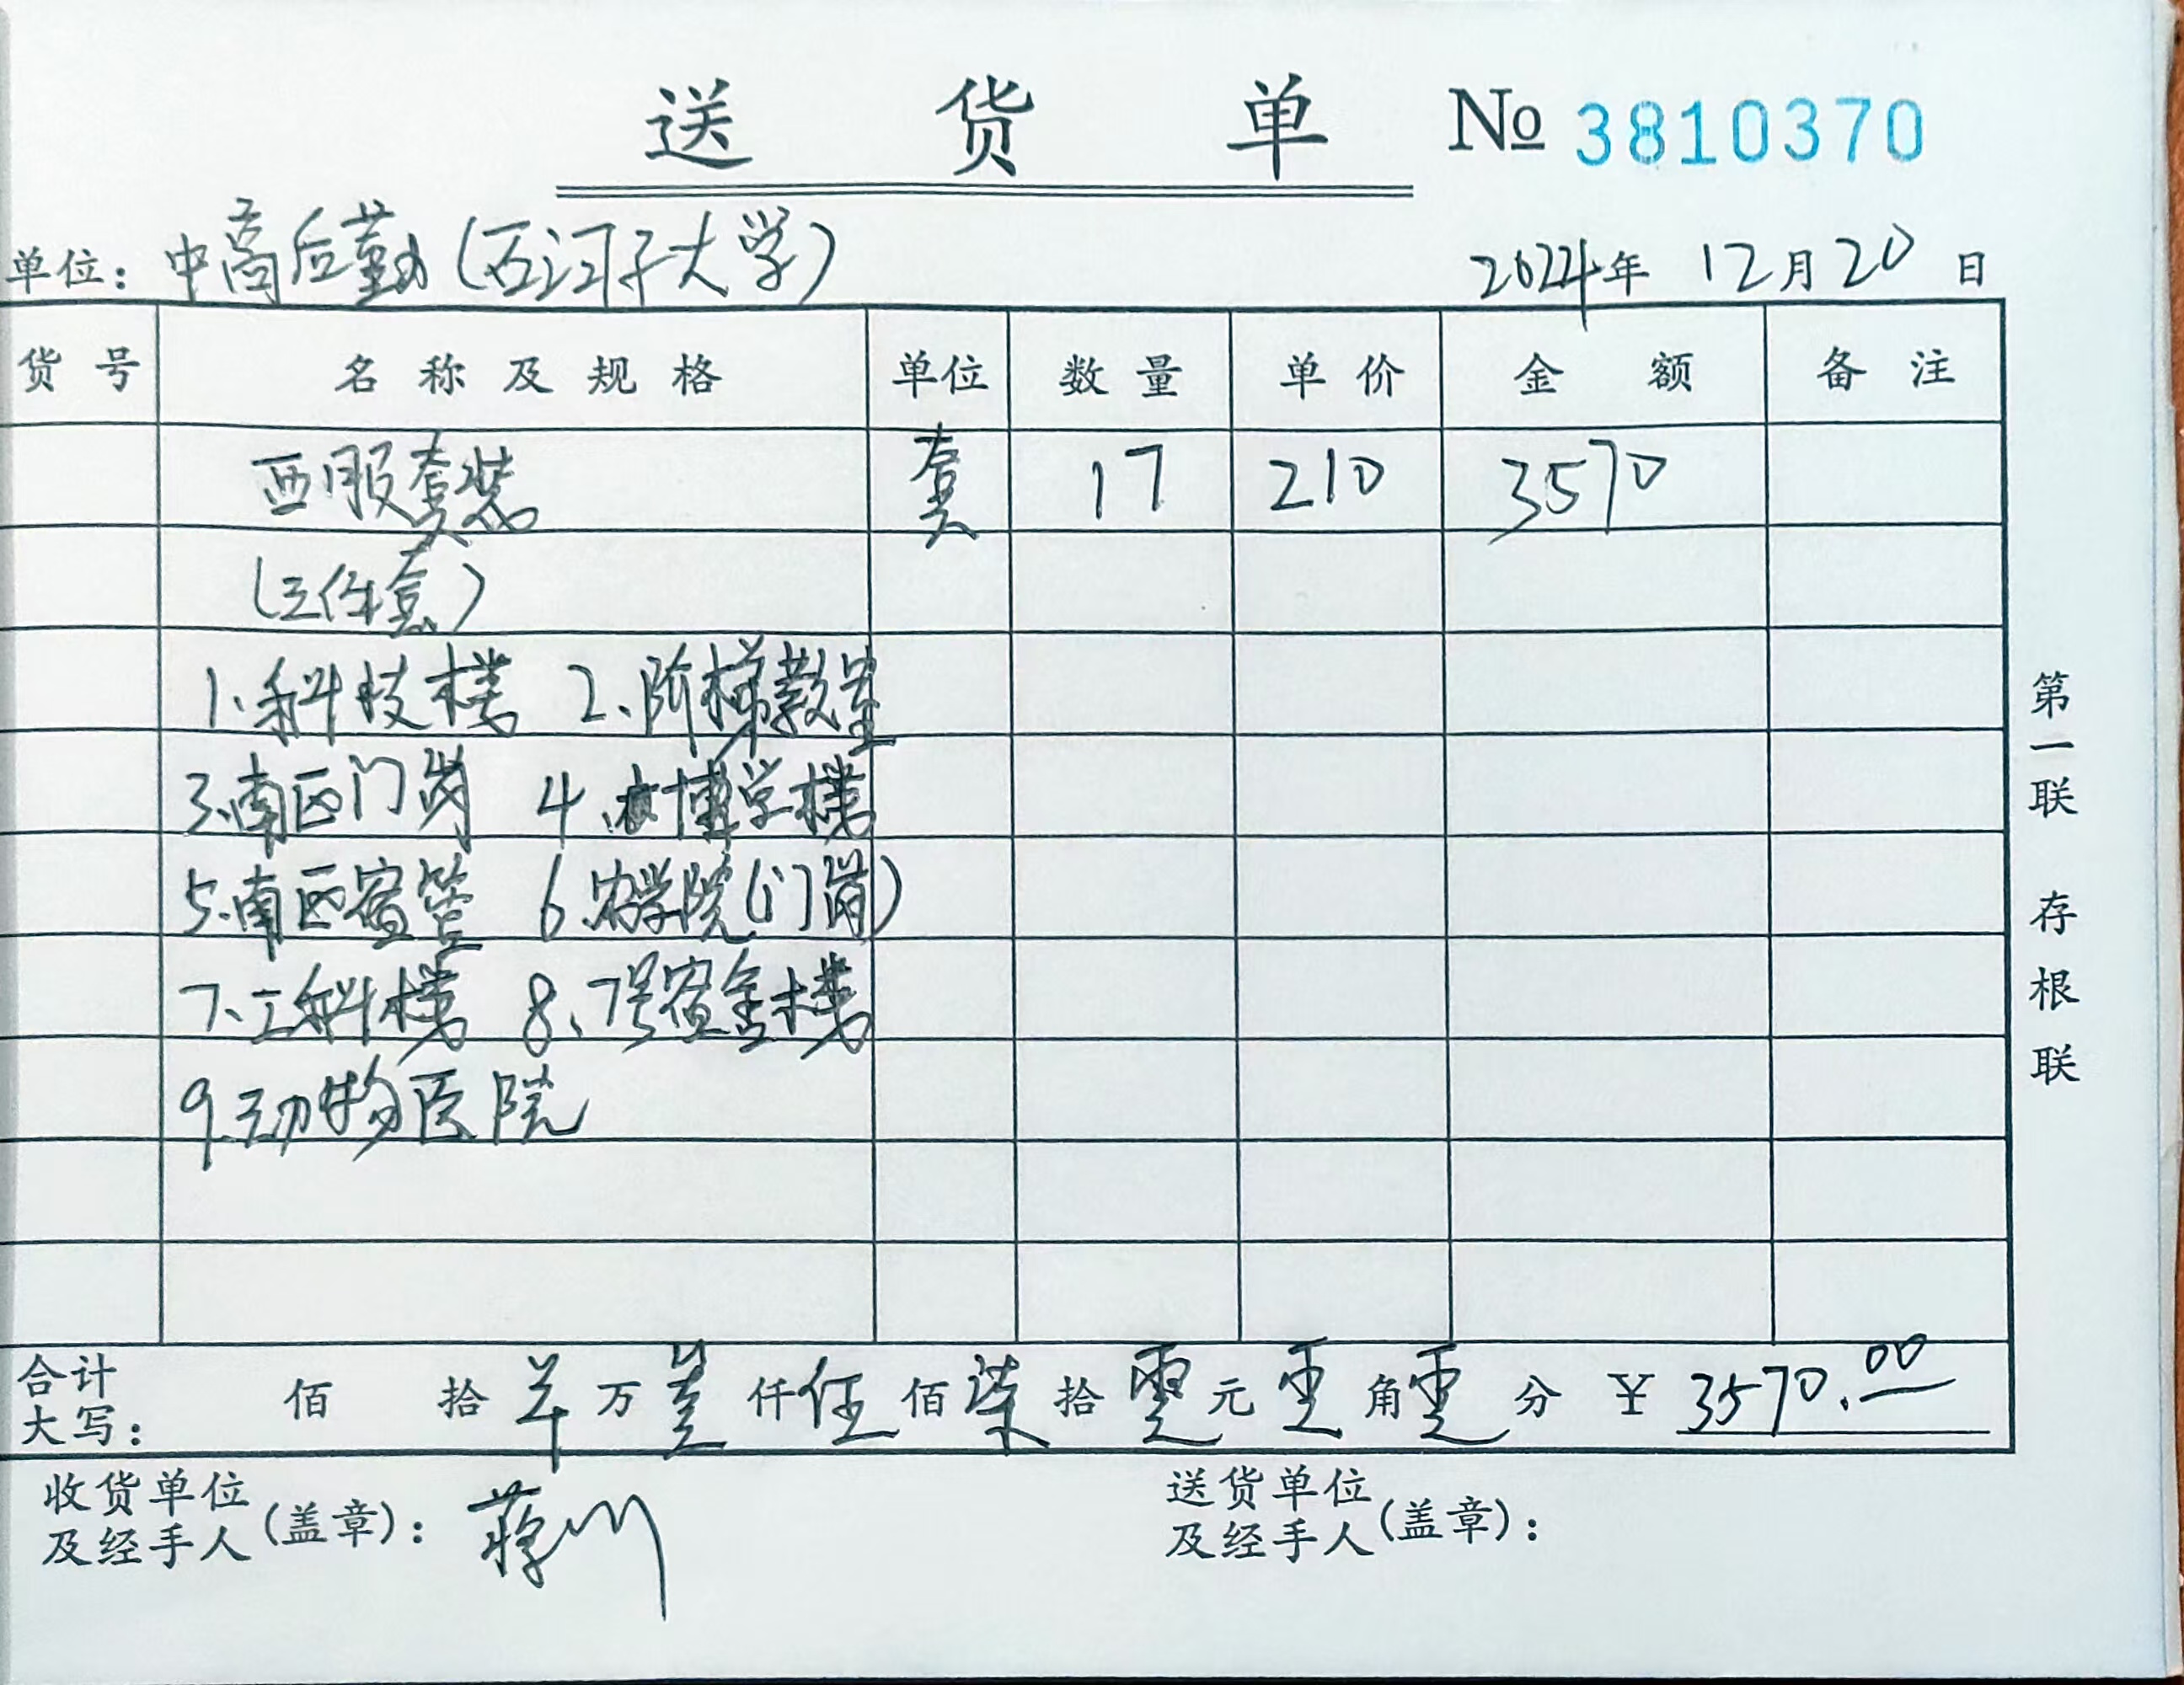 送货单 № 3810370
单位：中高后勤（石河子大学） 2024年 12月20日
货号 名称及规格 单位 数量 单价 金额 备注
西服套装 套 17 210 3570
（三件套）
1、科技楼 2、阶梯教室
3、南区门岗 4、博学楼
5、南区宿管 6、农学院（门岗）
7、工科楼 8、7号宿舍楼
9、动物医院
合计大写： 佰 拾 万 叁仟伍佰柒拾零元零角零分 ¥ 3570.00
收货单位及经手人（盖章）： 送货单位及经手人（盖章）：
第一联 存根联